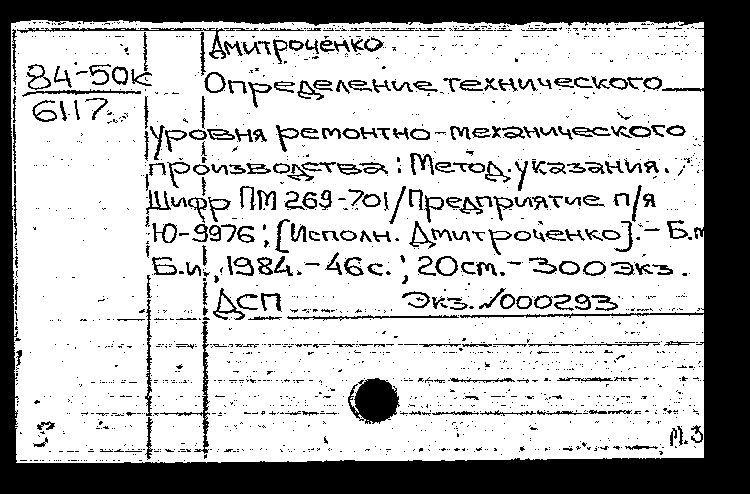 Дмитроченко
84-50к
6117
Определение технического
уровня ремонтно-механического
производства: Метод. указания.
Шифр ПМ 269-701/Предприятие п/я
Ю-9976; [Исполн. Дмитроченко]. - Б.м
Б.и., 1984. - 46с.; 20см. - 300экз.
ДСП Экз. №000293
м.3